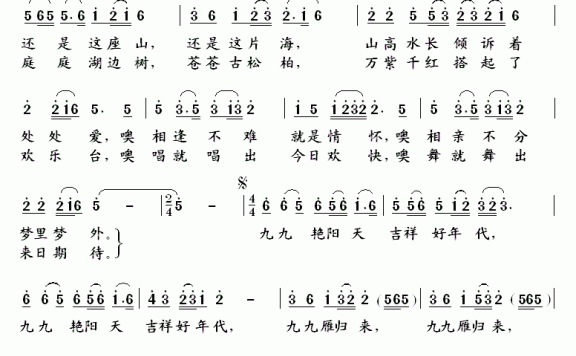 5655 5·6 1 2̇1̇6 | 3 1 2̇3̇ 2·1 6 | 2 2 5 53 2̇3̇2̇1̇ |
还 是 这座 山, 还 是 这片 海, 山 高 水长 倾 诉 着
庭 庭 湖边 树, 苍 苍 古松 柏, 万 紫 千红 搭 起 了
2 216 5· 5 | 3·5 3 132 | 1 5 1232 5·5 | 3·5 3 132 |
处 处 爱,噢 相 逢 不 难 就 是 情 怀,噢 相 亲 不 分
欢 乐 台,噢 唱 就 唱 出 今 日 欢 快,噢 舞 就 舞 出
2 2 216 5 - | 2/4 5 - | 4/4 6 6 5 656 1·6 | 5 56 3 2323· |
梦 里 梦 外。 九 九 艳阳 天 吉祥 好年 代,
来 日 期 待。
6 6 5 6 56 1·6 | 43 231 2 - | 3 6 1 32 2 (565) | 3 6 1 532 (565) |
九 九 艳阳 天 吉祥 好年 代, 九 九 雁归 来, 九 九 雁归 来,